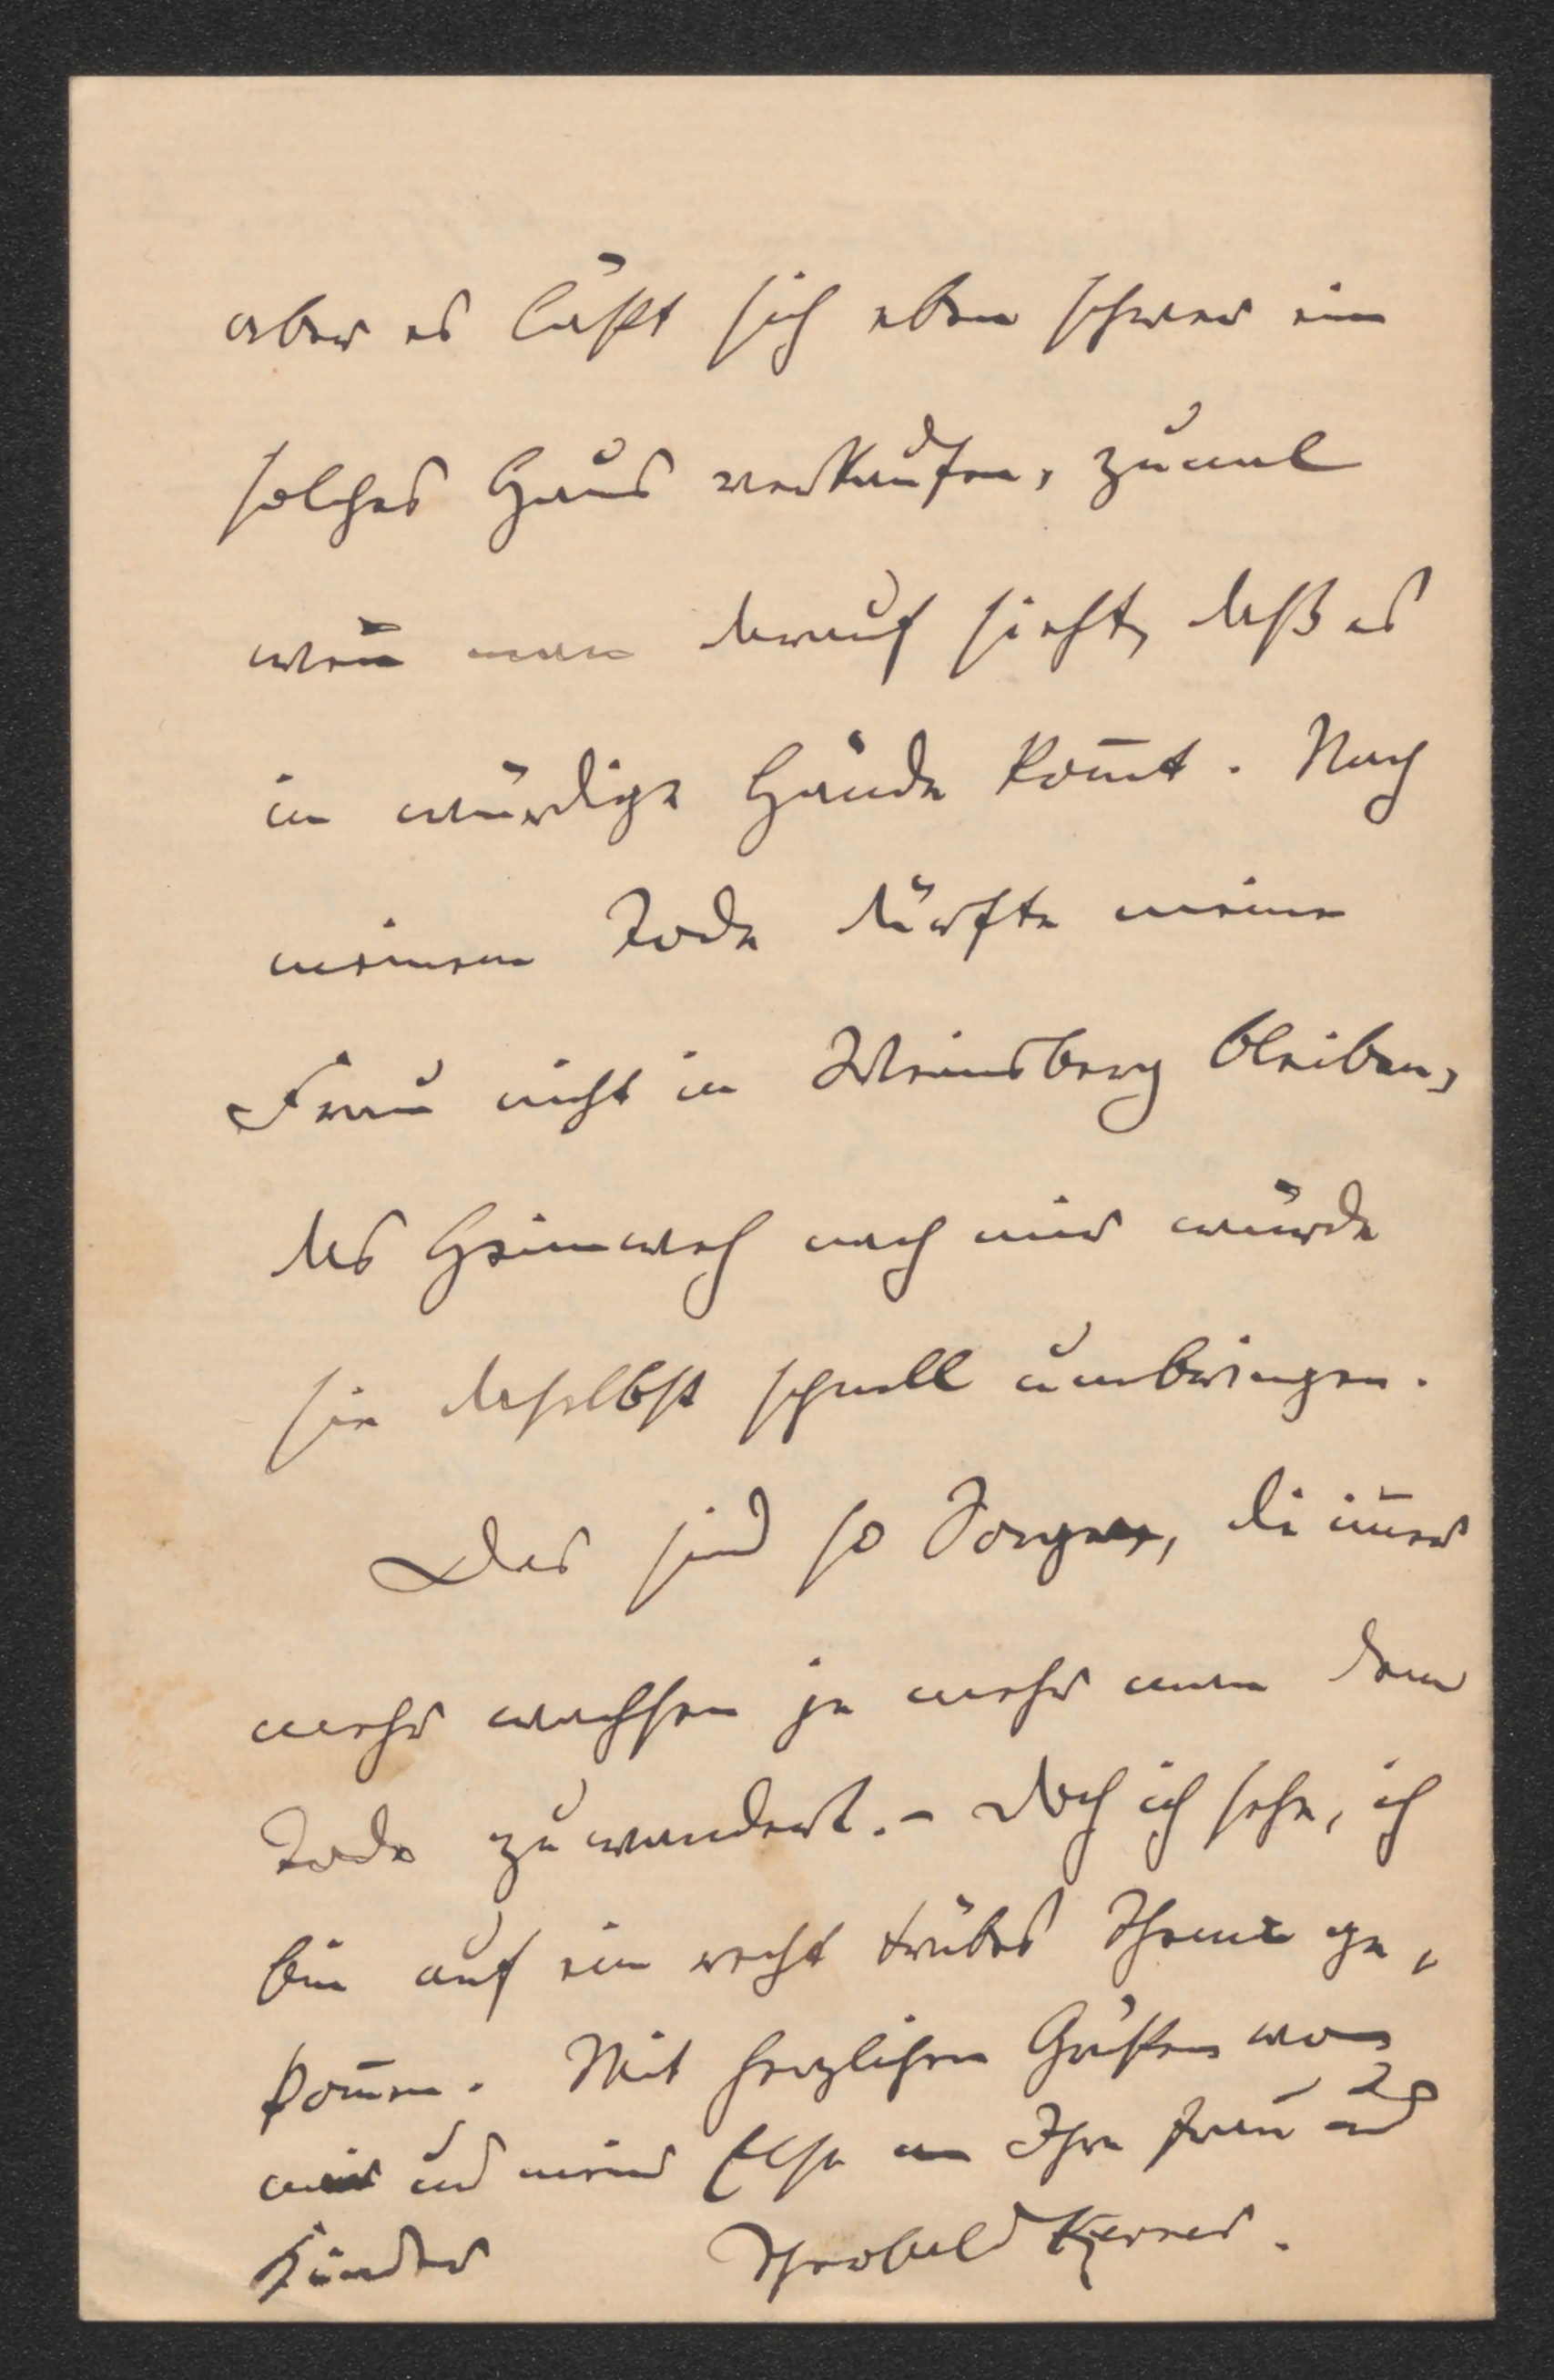 aber es läßt sich eben schwer ein
solches Haus verkaufen, zumal
weñ man darauf sieht, daß es
in würdige Hände kom̄t. Nach
meinem Tode dürfte meine
Frau nicht in Weinsberg bleiben,
das Heimweh nach mir würde
sie daselbst schnell umbringen.
Das sind so Sorgen, die im̄er
mehr wachsen je mehr man dem
Tode zu wandert. - Doch ich sehe, ich
bin auf ein recht trübes Thema ge„
kom̄en. Mit herzlichen Grüßen von
mir und meiner Else an Ihre Frau und
Kinder Theobald Kerner.